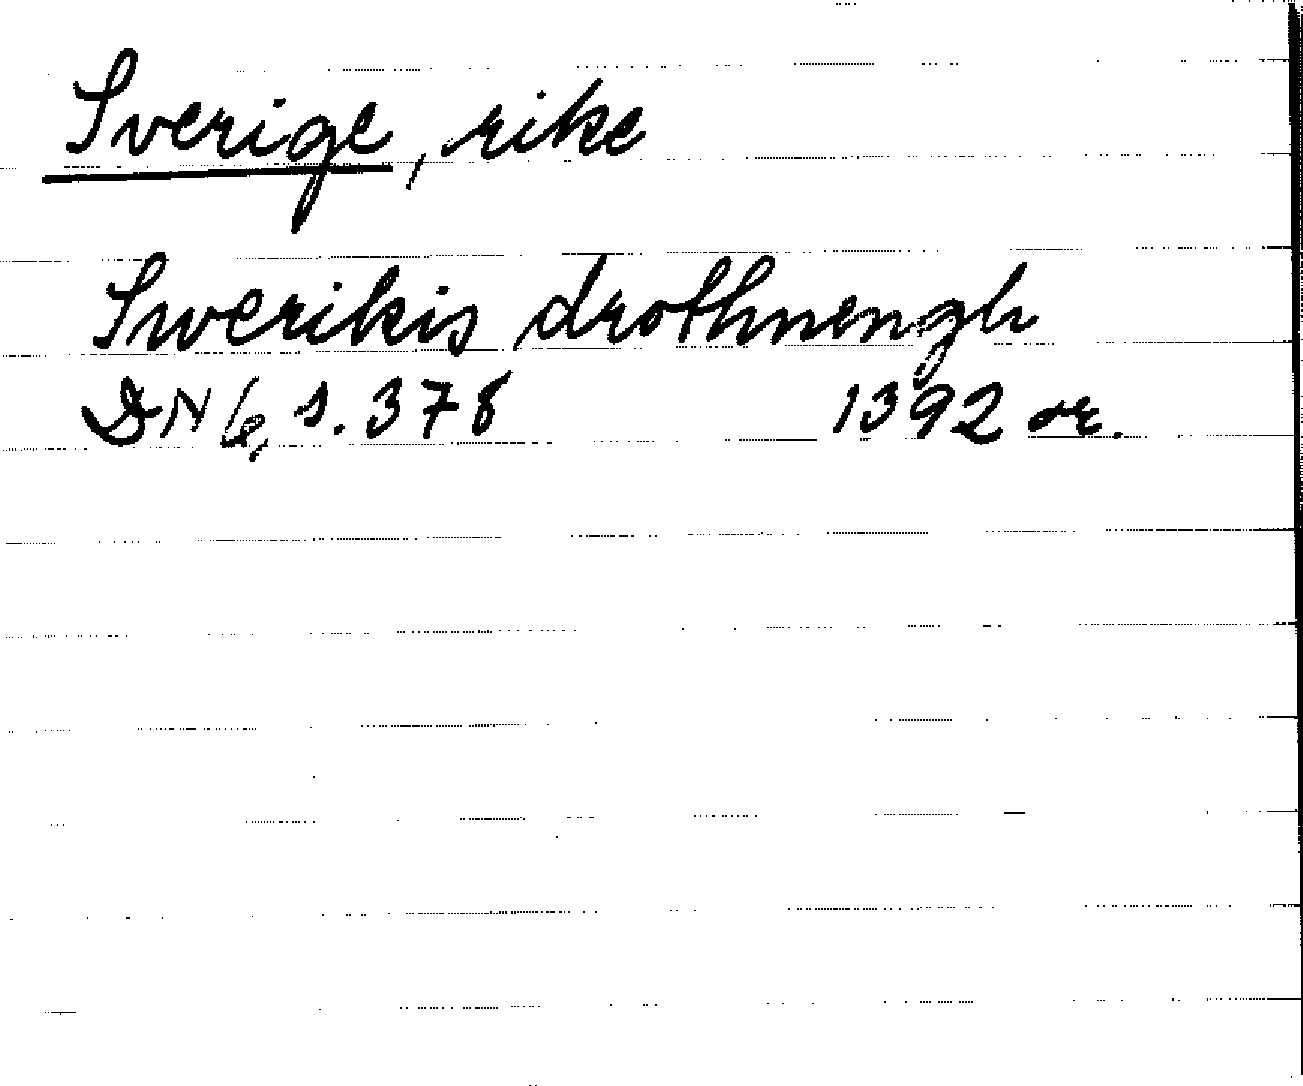 Sverige, rike
Swerikis drothnengh
DN 6, s. 378 1392 or.